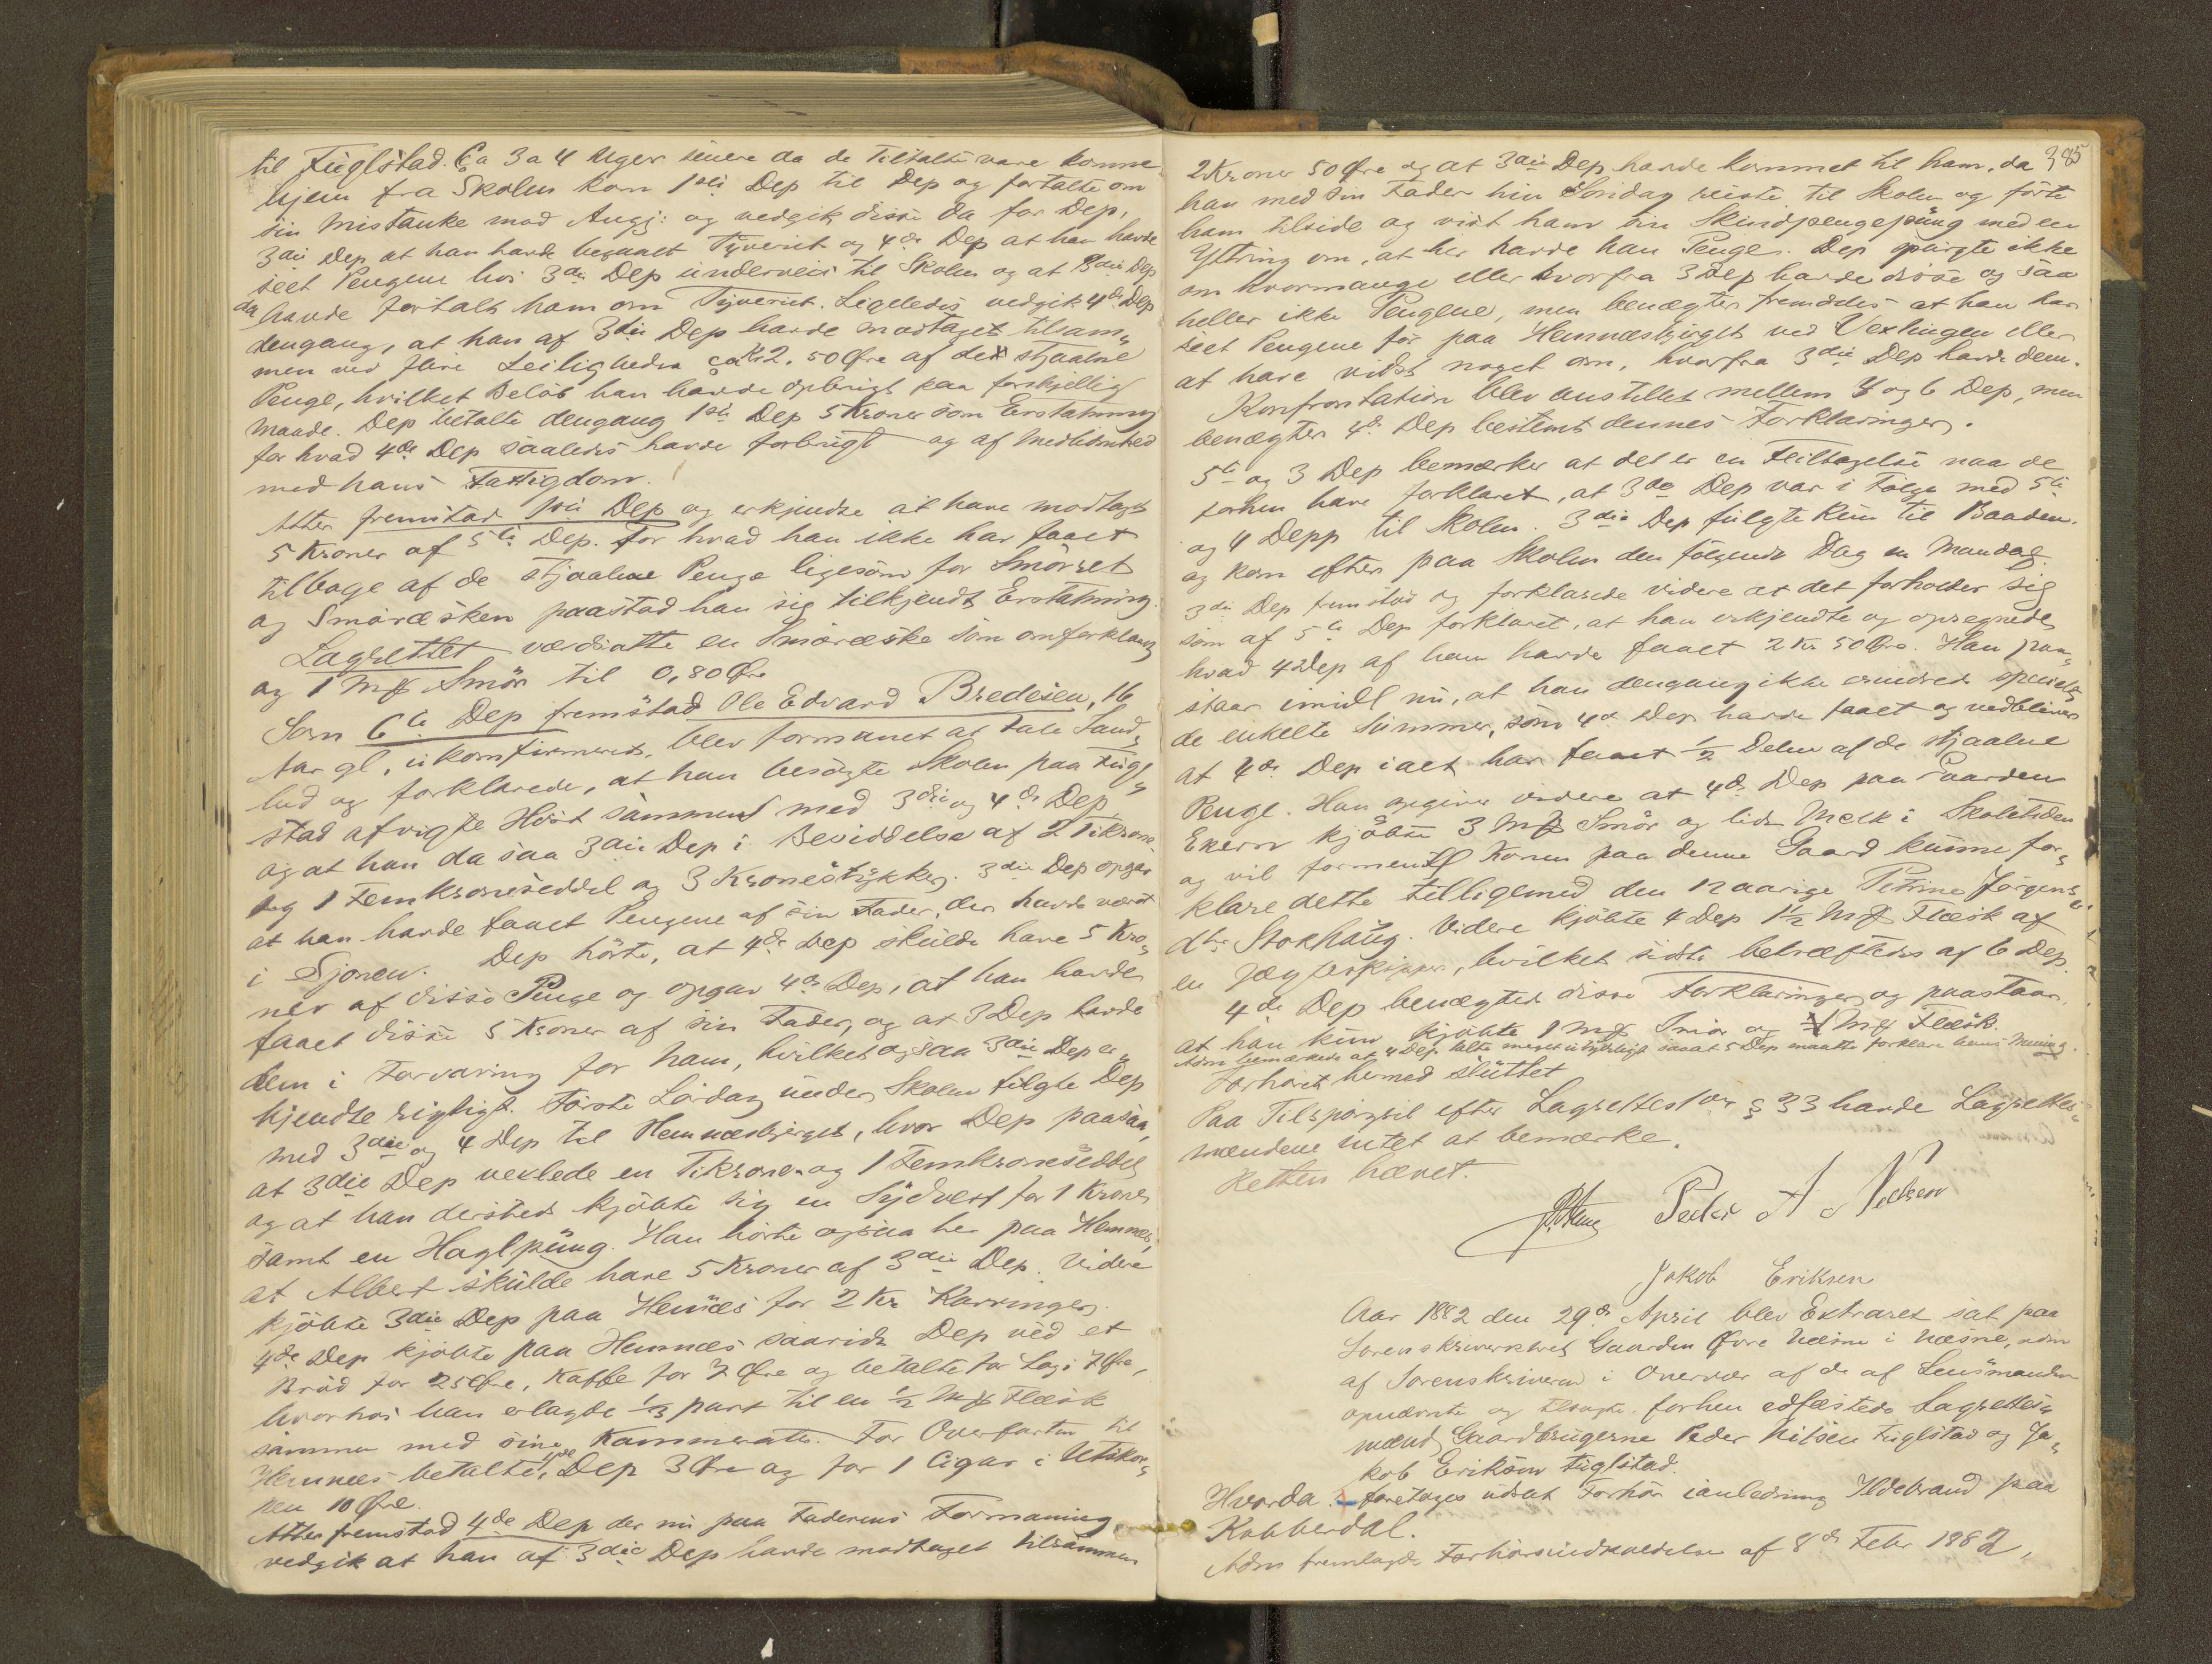 til Fuglstad. Ca 3 a 4 Uger senere da de Tiltalte vare komne
hjem fra Skolen kom 1ste Dep til Dep og fortalte om
sin Mistanke mod Angj: og vedgik disse da for Dep,
3die Dep at han havde begaaet Tyveriet og 4de Dep at han havde
seet Pengene hos 3die Dep underveis til Skolen og at 3die Dep
da havde fortalt ham om Tyveriet. Ligeledes vedgik 4de Dep
dengang, at han af 3die Dep havde modtaget tilsam„
men ved flere Leiligheder ca Kr 2.50 Øre af de stjaalne
Penge, hvilket Beløb han havde opbrugt paa forskjellig
Maade. Dep betalte dengang 1ste Dep 5 Kroner som Erstatning
for hvad 4de Dep saaledes havde forbrugt og af Medlidenhed
med hans Fattigdom.
Atter fremstod 1ste Dep og erkjendte at have modtaget
5 Kroner af 5te Dep. For hvad han ikke har faaet
tilbage af de stjaalne Penge ligesom for Smørret
og Smøræsken paastod han sig tilkjendt Erstatning.
Lagrettet værdsatte en Smøræske som omforklaret
og 1 Mk Smør til 0,80 Øre
Som 6te Dep fremstod Ole Edvard Bredesen, 16
Aar gl, ukonfirmeret, blev formanet at tale Sand„
hed og forklarede, at han besøgte Skolen paa Fugl„
stad afvigte Høst sammen med 3die og 4de Dep
og at han da saa 3die Dep i Besiddelse af 2 Tikrone„
og 1 Femkroneseddel og 3 Kronestykker. 3die Dep opgav
at han havde faaet Pengene af sin Fader, der havde været
i Sjonen. Dep hørte, at 4de Dep skulde have 5 Kro„
ner af disse Penge og opgav 4de Dep, at han havde
faaet disse 5 Kroner af sin Fader, og at 3 Dep havde
dem i Forvaring for ham, hvilket ogsaa 3die Dep er„
kjendte rigtigt. Første Lørdag under Skolen fulgte Dep
med 3die og 4 Dep til Hemnesbjerget, hvor Dep paasaa,
at 3die Dep vexlede en Tikrone og 1 Femkroneseddel
og at han dersteds kjøbte sig en Sydvest for 1 Krone
samt en Haglpung. Han hørte ogsaa her paa Hemnes,
at Albert skulde have 5 Kroner af 3die Dep. Videre
kjøbte 3die Dep paa Hemnes for 2 Kr Kavringer.
4de Dep kjøbte paa Hemnes saavidt Dep ved et
Brød for 25 Øre, Kaffe for 7 Øre og betalte for Logi 7 Øre,
hvorhos han erlagde 1/3 part til en 1/2 Mk Flæsk
sammen med sine Kammerater. For Overfarten til
Hemnes betalte 4de Dep 3 Øre og for 1 Cigar i Utskor„
pen 10 Øre.
Atter fremstod 4de Dep der nu paa Faderens Formaning
vedgik at han af 3die Dep havde modtaget tilsammen
385
2 Kroner 50 Øre og at 3die Dep havde kommet til ham, da
han med sin Fader hin Søndag reiste til Skolen og førte
ham tilside og vist ham sin Skindpengepung med en
Yttring om, at her havde han Penge. Dep spurgte ikke
om hvormange eller hvorfra 3 Dep havde disse og saa
heller ikke Pengene, men benægter fremdeles at han har
seet Pengene før paa Hemnesbjerget ved Vexlingen eller
at have vidst noget om, hvorfra 3die Dep havde dem.
Konfrontation blev anstillet mellem 4 og 6 Dep, men
benægter 4de Dep bestemt dennes Forklaringer.
5te og 3 Dep bemærker at det er en Feiltagelse naar de
forhen have forklaret, at 3die Dep var i Følge med 5te
og 4 Depp til Skolen. 3die Dep fulgte kun til Baaden.
og kom efter paa Skolen den følgende Dag en Mandag.
3die Dep fremstod og forklarede videre at det forholder sig
som af 5te Dep forklaret, at han erkjendte og opregnede
hvad 4 Dep af ham havde faaet 2 Kr 50 Øre. Han paa„
staar imidl nu, at han dengang ikke erindrede specielt
de enkelte Summer, som 4de Dep havde faaet og vedbliver
at 4de Dep ialt har faaet 1/2 Delen af de stjaalne
Penge. Han opgiver videre at 4de Dep paa Gaarden
Ekern kjøbte 3 Mk Smør og lidt Melk i Skoletiden
og vil formentl Konen paa denne Gaard kunne for„
klare dette tilligemed den 12 aarige Petrine Jørgens„
dtr Stokhaug. Videre kjøbte 4 Dep 1 1/2 Mk Flæsk af
en Jægteskipper, hvilket sidste bekræftedes af 6 Dep.
4de Dep benægter disse Forklaringer og paastaar,
at han kun kjøbte 1 Mk Smør og 1 Mk Flæsk.
Adm bemærkede at 4 Dep talte meget utydeligt saaat 5 Dep maatte forklare hans Mening.
Forhøret hermed sluttet
Paa Tilspørgsel efter Lagrettesloven § 33 havde Lagrettes„
mændene intet at bemærke.
Retten hævet.
Peder A Nielsen
Jakob Eriksen
Aar 1882 den 29de April blev Extraret sat paa
Sorenskriverktret Gaarden Øvre Næsne i Næsne, adm
af Sorenskriveren i Overvær af de af Lensmanden
opnævnte og tilsagte forhen edfæstede Lagrettes„
mænd, Gaardbrugerne Peder Nilsen Fuglstad og Ja„
kob Eriksen Fuglstad.
Hvorda foretoges udsat Forhør ianledning Ildebrand paa
Kobberdal.
Adm fremlagde Forhørsindkaldelse af 8de Febr 1882,